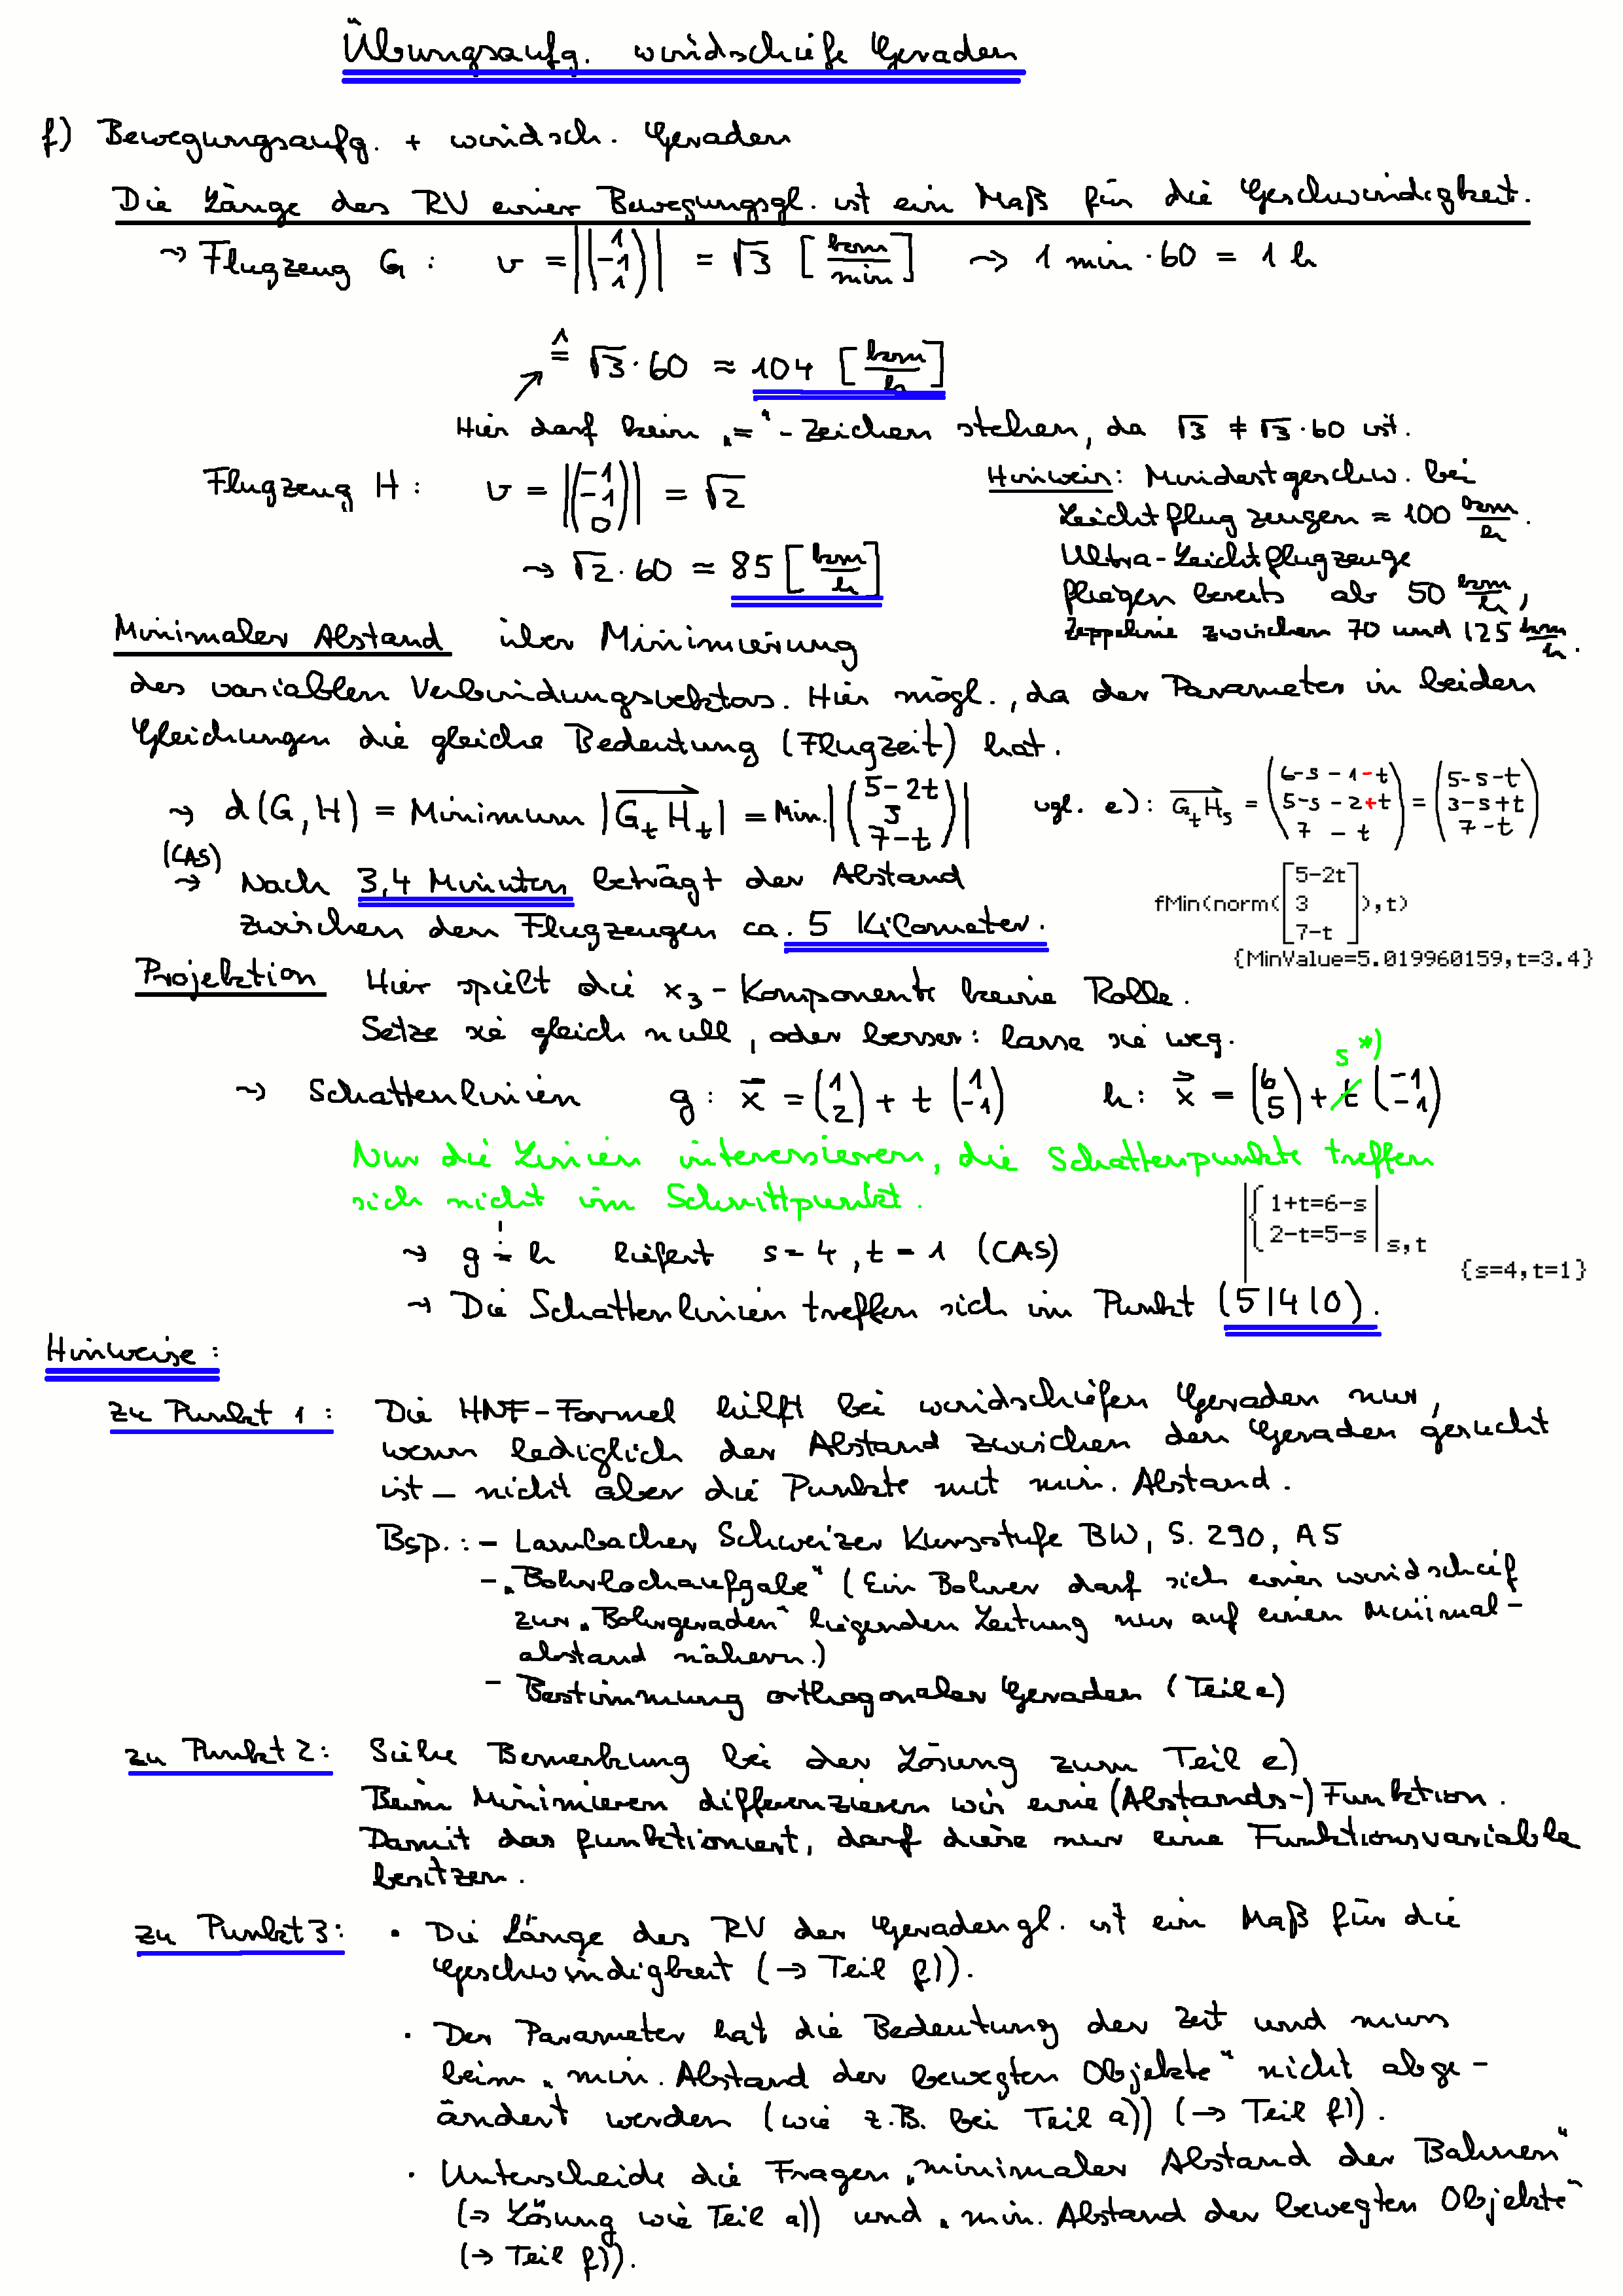 Übungsaufg. windschiefe Geraden
f) Bewegungsaufg. + windsch. Geraden
Die Länge des RV einer Bewegungsgl. ist ein Maß für die Geschwindigkeit.
⇝ Flugzeug G: v = |(1 −1 1)| = √3 [km/min] ⇝ 1 min · 60 = 1 h
≙ √3 · 60 ≈ 104 [km/h]
Hier darf kein „="-Zeichen stehen, da √3 ≠ √3 · 60 ist.
Flugzeug H: v = |(−1 −1 0)| = √2
⇝ √2 · 60 ≈ 85 [km/h]
Hinweis: Mindestgeschw. bei
Leichtflugzeugen ≈ 100 km/h.
Ultra-Leichtflugzeuge
fliegen bereits ab 50 km/h,
Zeppeline zwischen 70 und 125 km/h.
Minimaler Abstand über Minimierung
des variablen Verbindungsvektors. Hier mögl., da der Parameter in beiden
Gleichungen die gleiche Bedeutung (Flugzeit) hat.
⇝ d(G,H) = Minimum |G_t H_t| = Min. |(5−2t 3 7−t)|
vgl. e): G_t H_s = (6−s−1−t 5−s−2+t 7−t) = (5−s−t 3−s+t 7−t)
(CAS)
⇝ Nach 3,4 Minuten beträgt der Abstand
zwischen den Flugzeugen ca. 5 Kilometer.
fMin(norm([5−2t 3 7−t]),t)
{MinValue=5.019960159,t=3.4}
Projektion Hier spielt die x₃-Komponente keine Rolle.
Setze sie gleich null, oder besser: lasse sie weg.
s *)
⇝ Schattenlinien g: x = (1 2) + t (1 −1) h: x = (6 5) + t (−1 −1)
Nur die Linien interessieren, die Schattenpunkte treffen
sich nicht im Schnittpunkt.
⇝ g != h liefert s = 4, t = 1 (CAS)
{1+t=6−s
2−t=5−s | s,t
{s=4,t=1}
⇝ Die Schattenlinien treffen sich im Punkt (5|4|0).
Hinweise:
zu Punkt 1: Die HNF-Formel hilft bei windschiefen Geraden nur,
wenn lediglich der Abstand zwischen den Geraden gesucht
ist – nicht aber die Punkte mit min. Abstand.
Bsp.: – Lambacher Schweizer Kursstufe BW, S. 290, A5
– „Bohrlochaufgabe" (Ein Bohrer darf sich einer windschief
zur „Bohrgeraden" liegenden Leitung nur auf einen Minimal-
abstand nähern.)
– Bestimmung orthogonaler Geraden (Teil e)
zu Punkt 2: Siehe Bemerkung bei der Lösung zum Teil e)
Beim Minimieren differenzieren wir eine (Abstands-) Funktion.
Damit das funktioniert, darf diese nur eine Funktionsvariable
besitzen.
zu Punkt 3: • Die Länge des RV der Geradengl. ist ein Maß für die
Geschwindigkeit (→ Teil f)).
• Der Parameter hat die Bedeutung der Zeit und muss
beim „min. Abstand der bewegten Objekte" nicht abge-
ändert werden (wie z.B. bei Teil a)) (→ Teil f)).
• Unterscheide die Fragen „minimaler Abstand der Bahnen"
(→ Lösung wie Teil a)) und „min. Abstand der bewegten Objekte"
(→ Teil f)).